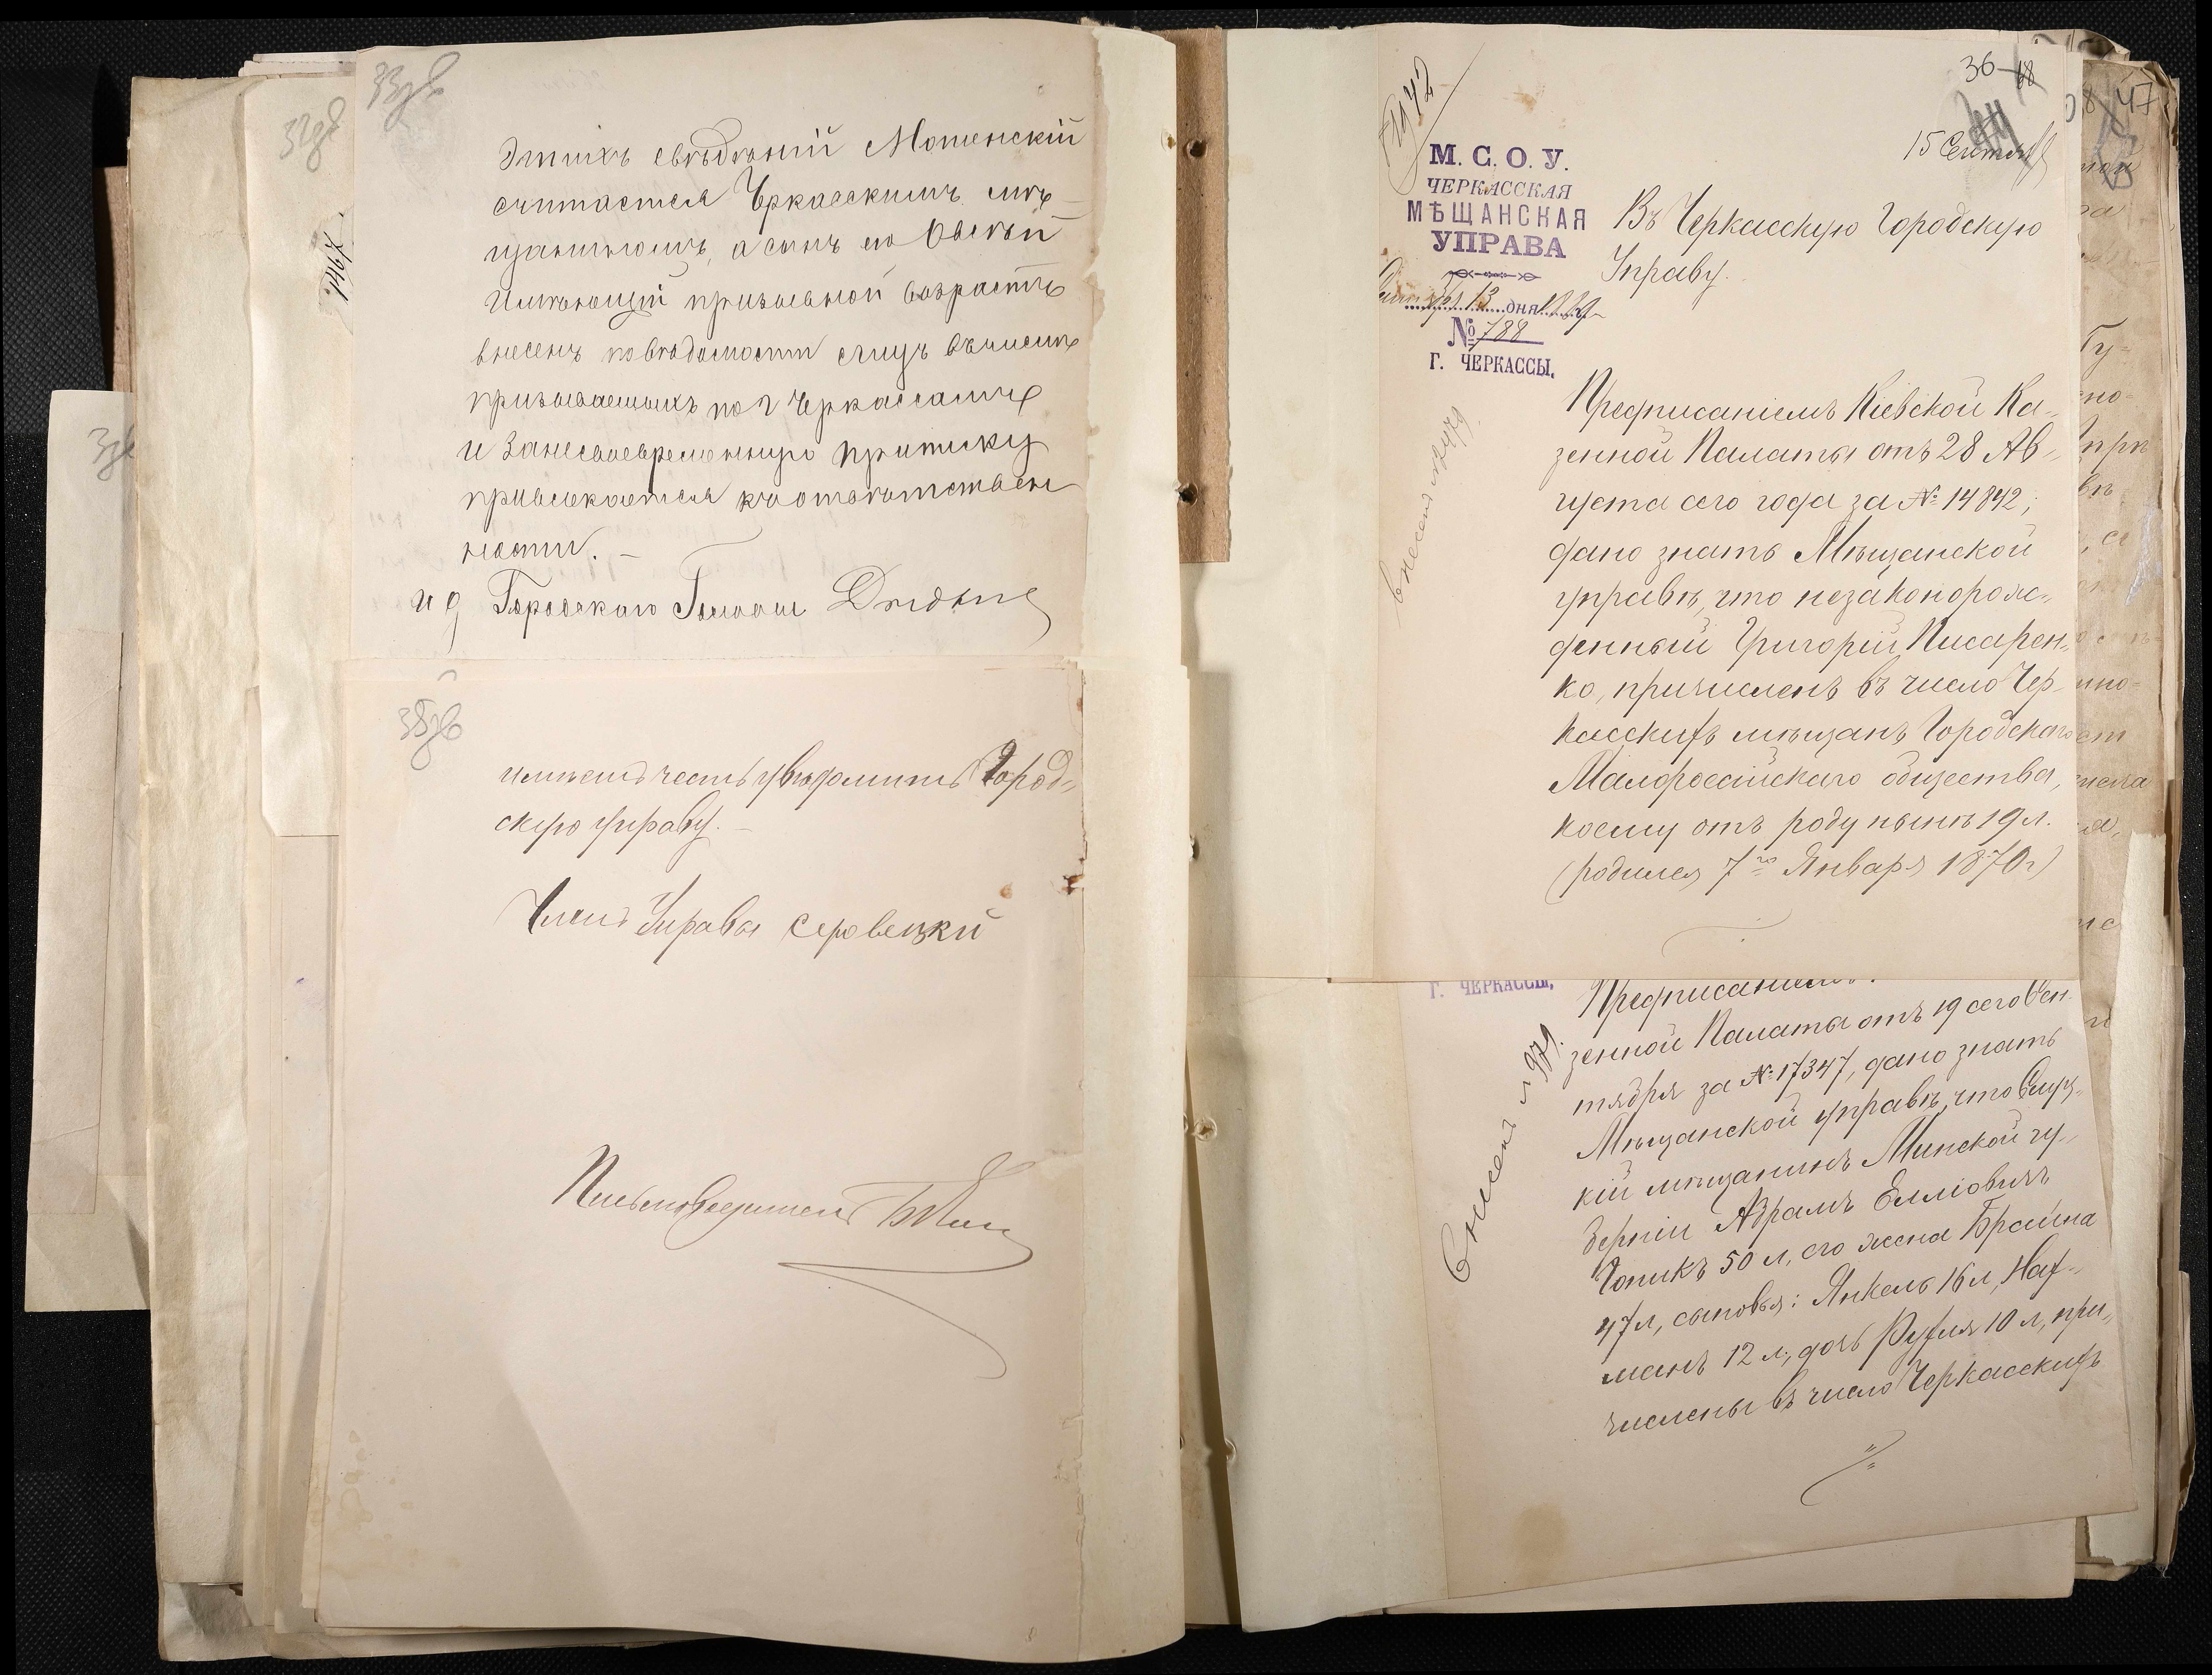 33зв
Этихъ свѣдѣній Мотенскій
считается Черкасскимъ мѣ-
щаниномъ, а сынъ его Овсѣй
Имѣющій призывной возрастъ
внесенъ по вѣдомости лицъ въ число
призываемыхъ по г Черкассамъ
и Занесвоевременную приписку
привлекается къ отвѣтствен
ности. –
и д Городского Головы
35зв
имѣетъ честь увѣдомить Город-
скую управу. –
Членъ Управы
Письмоводитель
32зв
1467
36
68
15 Сентяб
М. С. О. У.
ЧЕРКАССКАЯ
МѢЩАНСКАЯ
УПРАВА
Сентября 13 дня 1889
№ 788
Г. ЧЕРКАССЫ.
Въ Черкасскую Городскую
Управу.
внесенъ № 479.
Предписаніемъ Кіевской Ка-
зенной Палаты отъ 28 Ав-
густа сего года за № 14842,
дано знать Мѣщанской
управѣ, что незаконорож-
денный Григорій Писарен-
ко, причисленъ въ число Чер-
касскихъ мѣщанъ Городскаго
Малороссійскаго общества,
коему отъ роду нынѣ 19 л.
(родился 7го Января 1870 г)
Г. ЧЕРКАССЫ.
внесенъ № 979.
Предписаніемъ
зенной Палаты отъ 19 сего Сен
тября за № 17347, дано знать
Мѣщанской управѣ, что Слуц-
кій мѣщанинъ Минской гу-
берніи Абрамъ Елліовичъ
Чопикъ 50 л, его жена Брайна
47 л, сыновья: Янкель 16 л, Нах-
манъ 12 л, дочь Рухля 10 л, при-
числены въ число Черкасскихъ
47